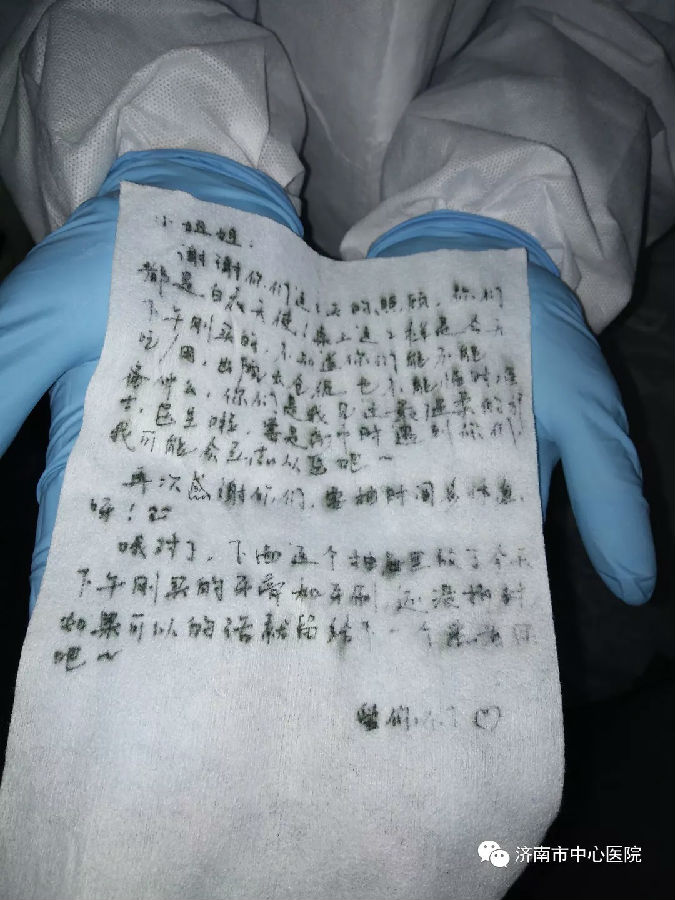 小姐姐：
谢谢你们这几天的照顾，你们
都是白衣天使！桌上这些是今天
下午刚买的，不知道你们能不能
吃，因出院去仓促也不能临时准
备什么，你们是我见过最温柔的护
士，医生啦，要是高中时遇到你们
我可能会去学医吧～
再次感谢你们，要抽时间多休息
呀！
哦对了，下面这个抽屉里放了今天
下午刚买的牙膏和牙刷，还没拆封
如果可以的话就给下一个
吧～
你们 ♡
济南市中心医院